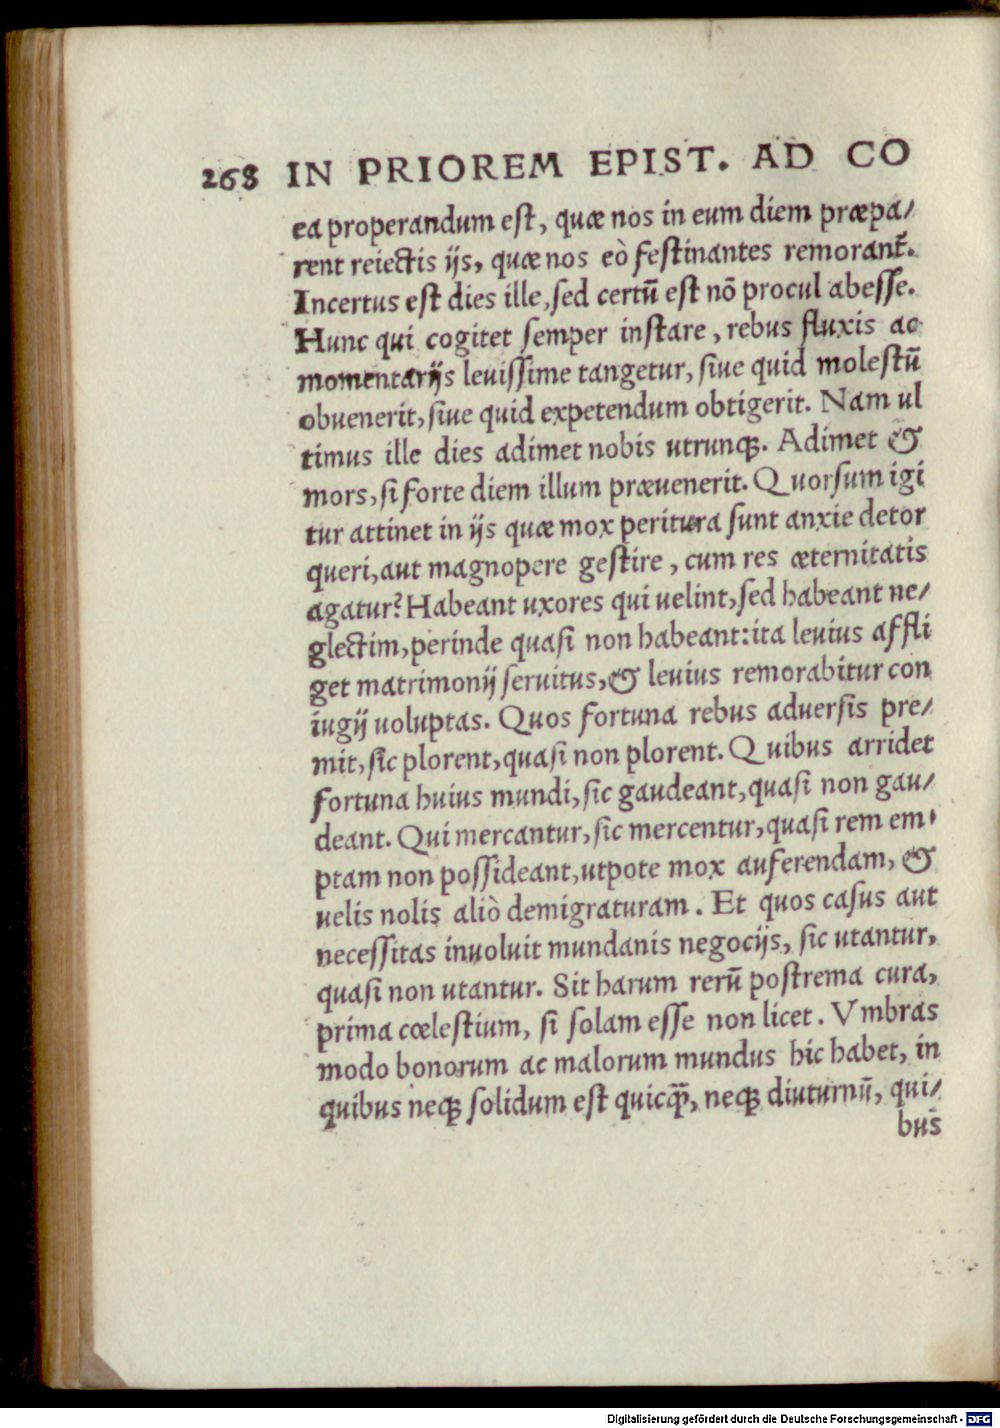 268 IN PRIOREM EPIST. AD CO
ea properandum est, quæ nos in eum diem præpa/
rent reiectis ijs, quæ nos eò festinantes remorant̃.
Incertus est dies ille, sed certũ est nõ procul abesse.
Hunc qui cogitet semper instare, rebus fluxis ac
momentarijs leuissime tangetur, siue quid molestũ
obuenerit, siue quid expetendum obtigerit. Nam ul
timus ille dies adimet nobis utrunq;. Adimet &
mors, si forte diem illum præuenerit. Quorsum igi
tur attinet in ijs quæ mox peritura sunt anxie detor
queri, aut magnopere gestire, cum res æternitatis
agatur? Habeant uxores qui uelint, sed habeant ne/
glectim, perinde quasi non habeant: ita leuius affli
get matrimonij seruitus, & leuius remorabitur con
iugij uoluptas. Quos fortuna rebus aduersis pre/
mit, sic plorent, quasi non plorent. Quibus arridet
fortuna huius mundi, sic gaudeant, quasi non gau/
deant. Qui mercantur, sic mercentur, quasi rem em/
ptam non possideant, utpote mox auferendam, &
uelis nolis aliò demigraturam. Et quos casus aut
necessitas inuoluit mundanis negocijs, sic utantur,
quasi non utantur. Sit harum rerũ postrema cura,
prima cœlestium, si solam esse non licet. Vmbras
modo bonorum ac malorum mundus hic habet, in
quibus neq; solidum est quicq̃, neq; diuturnũ, qui/
bus
Digitalisierung gefördert durch die Deutsche Forschungsgemeinschaft - DFG